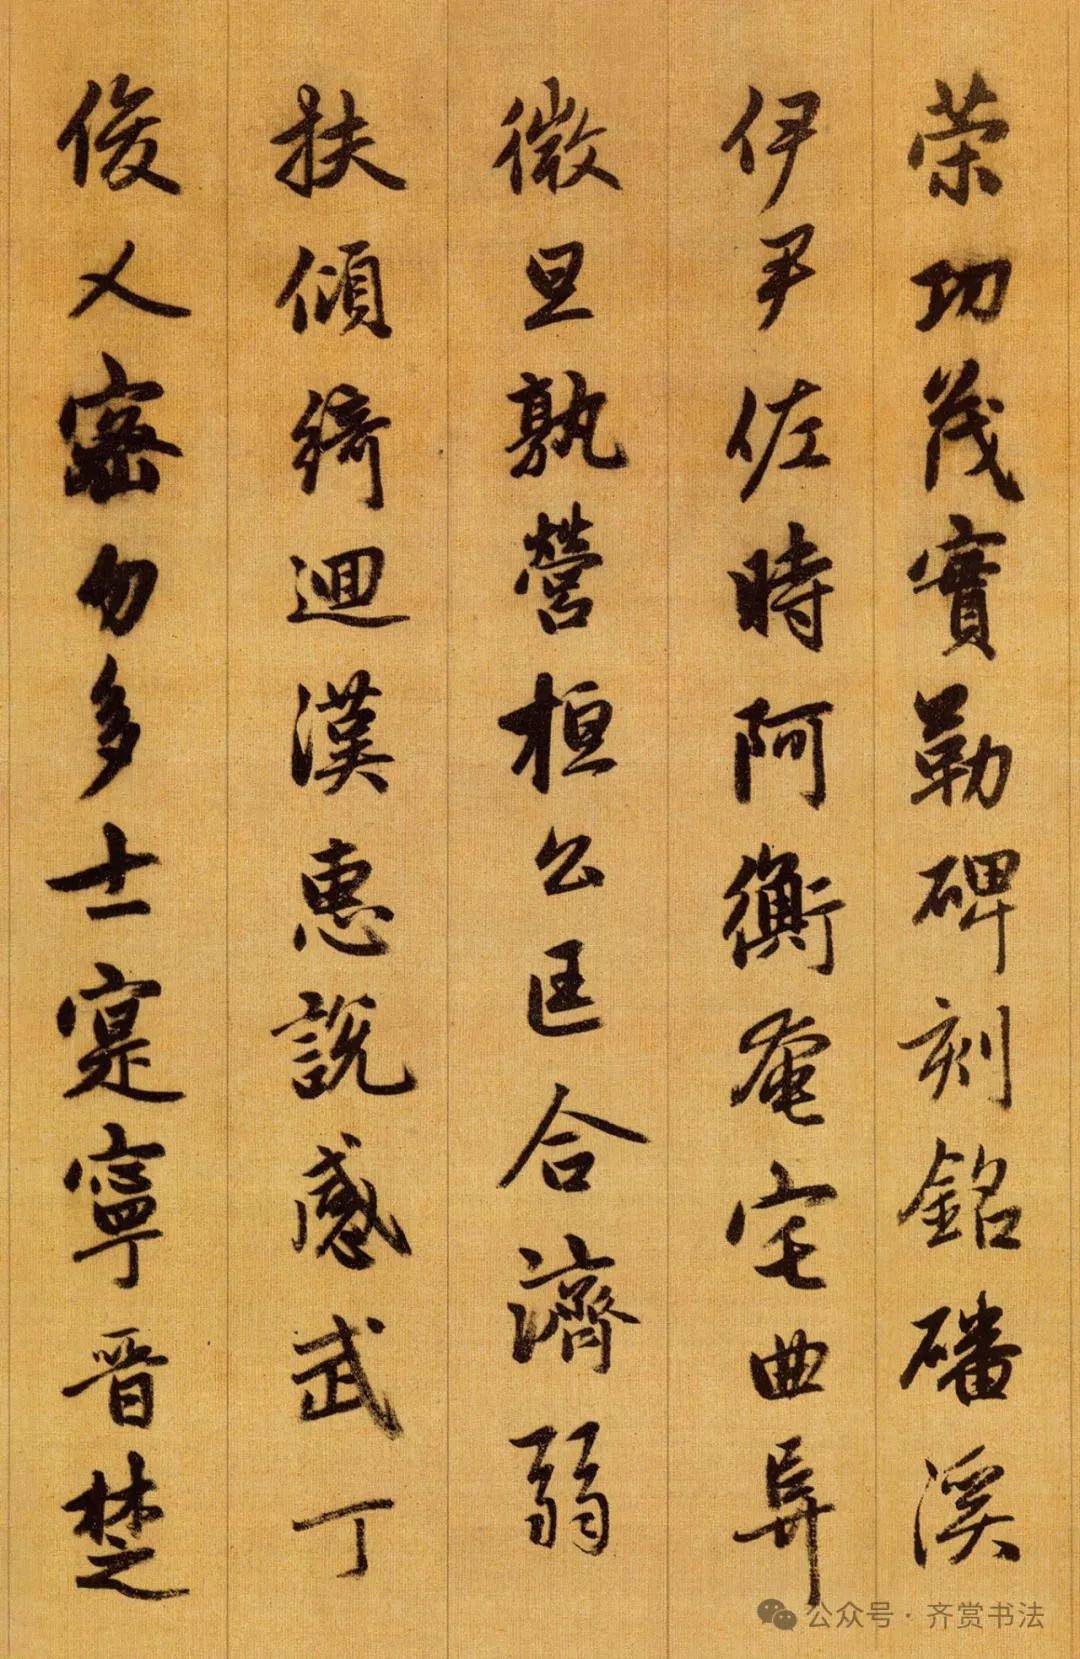 荣功茂實勒碑刻銘磻溪
伊尹佐時阿衡奄宅曲阜
微旦孰營桓公匡合濟弱
扶傾綺迴漢惠說感武丁
俊乂密勿多士寔寧晋楚
公众号·齐赏书法